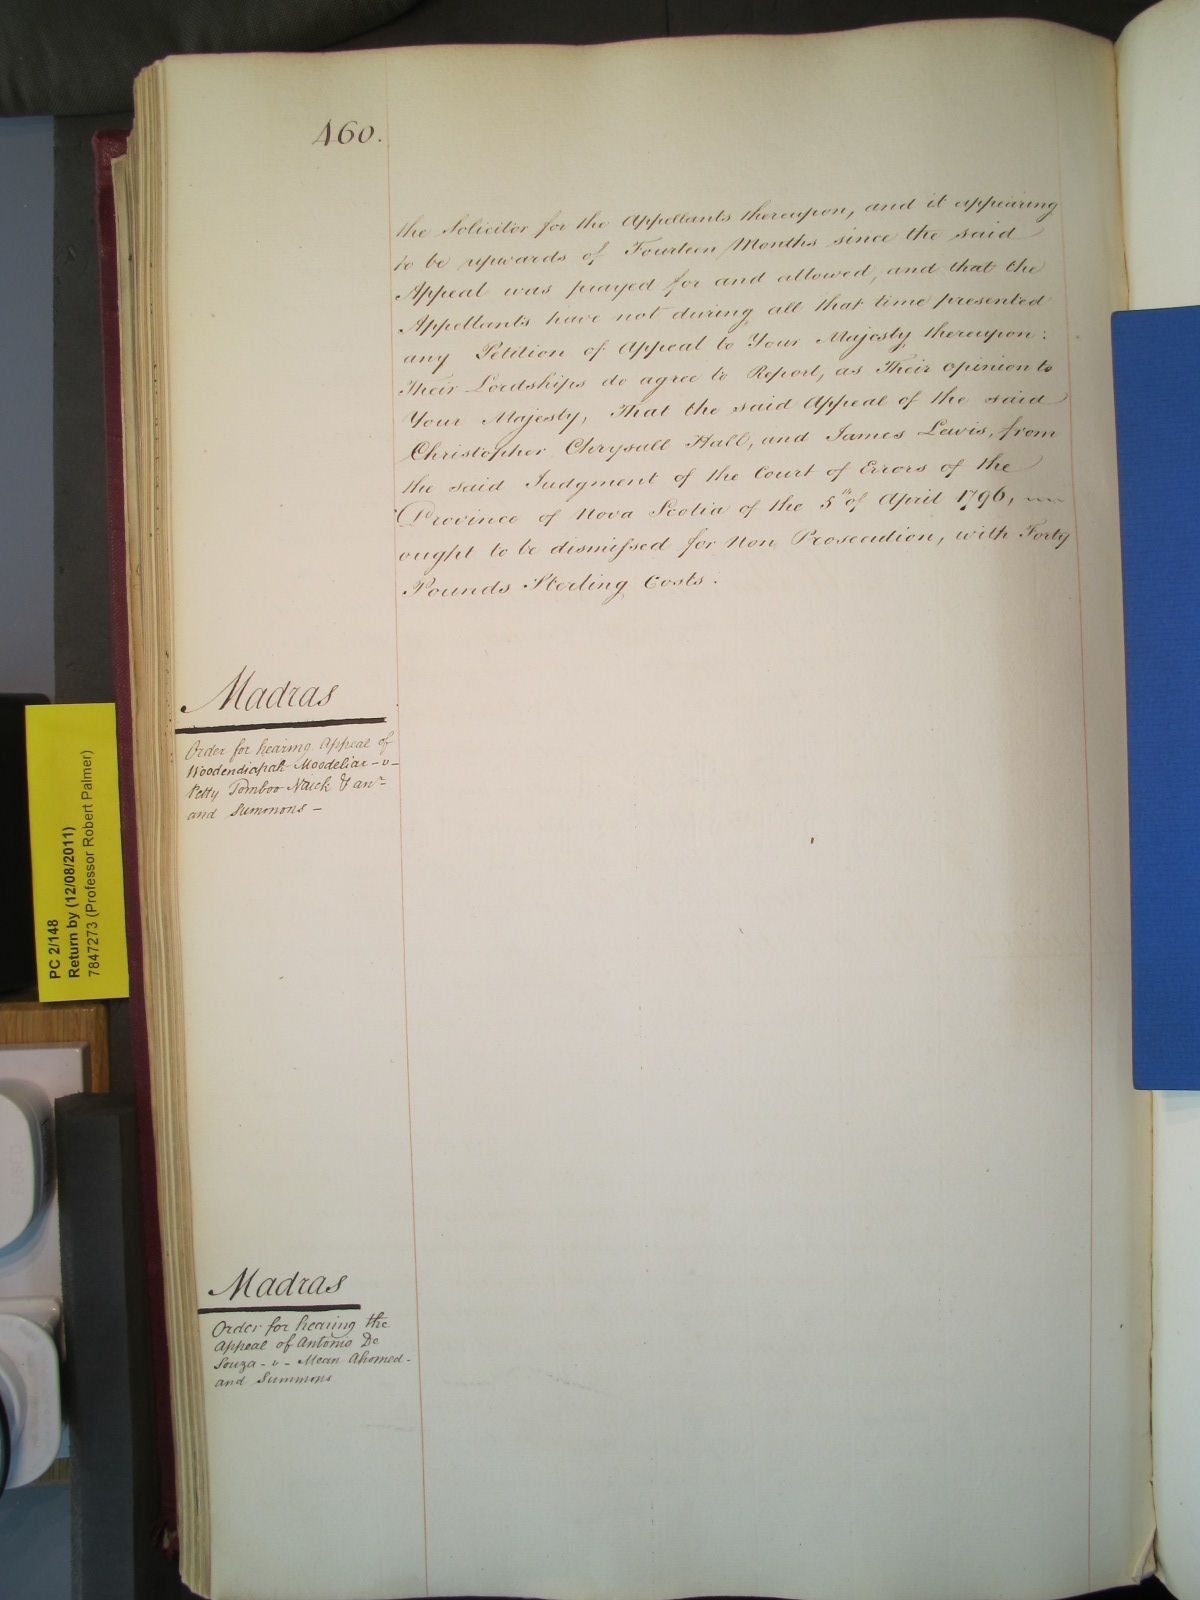 460.
the Solicitor for the Appellants thereupon, and it appearing
to be upwards of Fourteen Months since the said
Appeal was prayed for and allowed, and that the
Appellants have not during all that time presented
any Petition of Appeal to Your Majesty thereupon:
Their Lordships do agree to Report, as Their opinion to
Your Majesty, That the said Appeal of the said
Christopher Chrysall Hall, and James Lewis, from
the said Judgment of the Court of Errors of the
Province of Nova Scotia of the 5th of April 1796,
ought to be dismissed for Non Prosecution, with Forty
Pounds Sterling Costs.
Madras
Order for hearing Appeal of
Woodendiapah Moodeliar - v -
Petty Tomboo Naick & anr
and Summons -
Madras
Order for hearing the
Appeal of Antonio De
Souza - v - Mean Ahomed -
and Summons
PC 2/148
Return by (12/08/2011)
7847273 (Professor Robert Palmer)